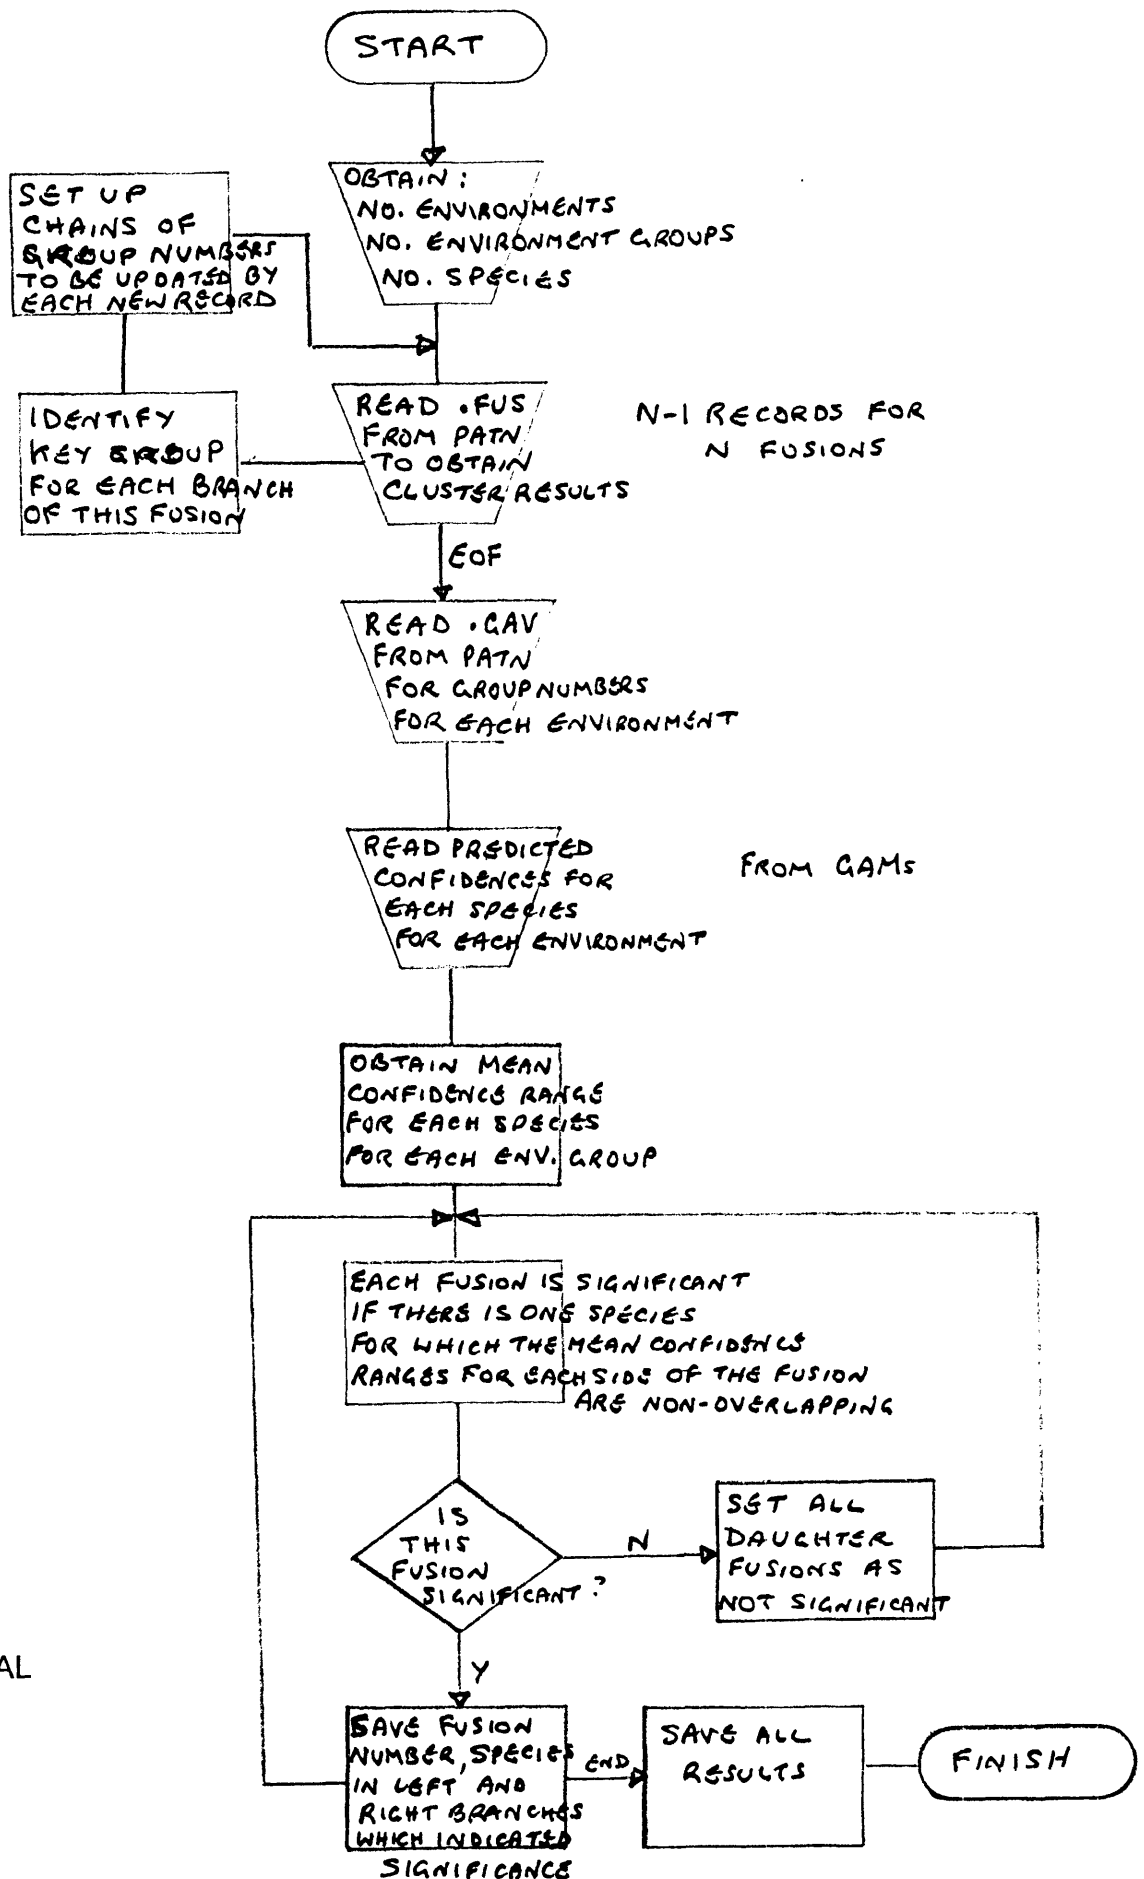 START
OBTAIN:
NO. ENVIRONMENTS
NO. ENVIRONMENT GROUPS
NO. SPECIES
SET UP
CHAINS OF
GROUP NUMBERS
TO BE UPDATED BY
EACH NEW RECORD
IDENTIFY
KEY GROUP
FOR EACH BRANCH
OF THIS FUSION
READ .FUS
FROM PATN
TO OBTAIN
CLUSTER RESULTS
N-1 RECORDS FOR
N FUSIONS
EOF
READ .GAV
FROM PATN
FOR GROUP NUMBERS
FOR EACH ENVIRONMENT
READ PREDICTED
CONFIDENCES FOR
EACH SPECIES
FOR EACH ENVIRONMENT
FROM GAMs
OBTAIN MEAN
CONFIDENCE RANGE
FOR EACH SPECIES
FOR EACH ENV. GROUP
EACH FUSION IS SIGNIFICANT
IF THERE IS ONE SPECIES
FOR WHICH THE MEAN CONFIDENCE
RANGES FOR EACH SIDE OF THE FUSION
ARE NON-OVERLAPPING
IS
THIS
FUSION
SIGNIFICANT?
N
SET ALL
DAUGHTER
FUSIONS AS
NOT SIGNIFICANT
Y
AL
SAVE FUSION
NUMBER, SPECIES
IN LEFT AND
RIGHT BRANCHES
WHICH INDICATED
SIGNIFICANCE
END
SAVE ALL
RESULTS
FINISH